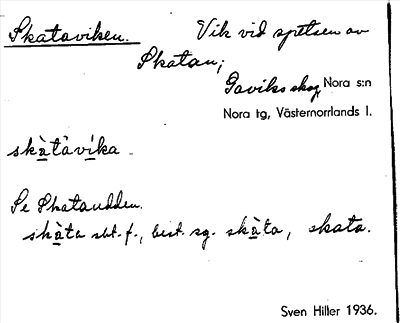 Skataviken. Vik vid spetsen av
Skatan;
Gaviks skog, Nora s:n
Nora tg, Västernorrlands l.
skàtavíka
Se Skataudden.
skàta sbt. f., best. sg. skàta, skata.
Sven Hiller 1936.